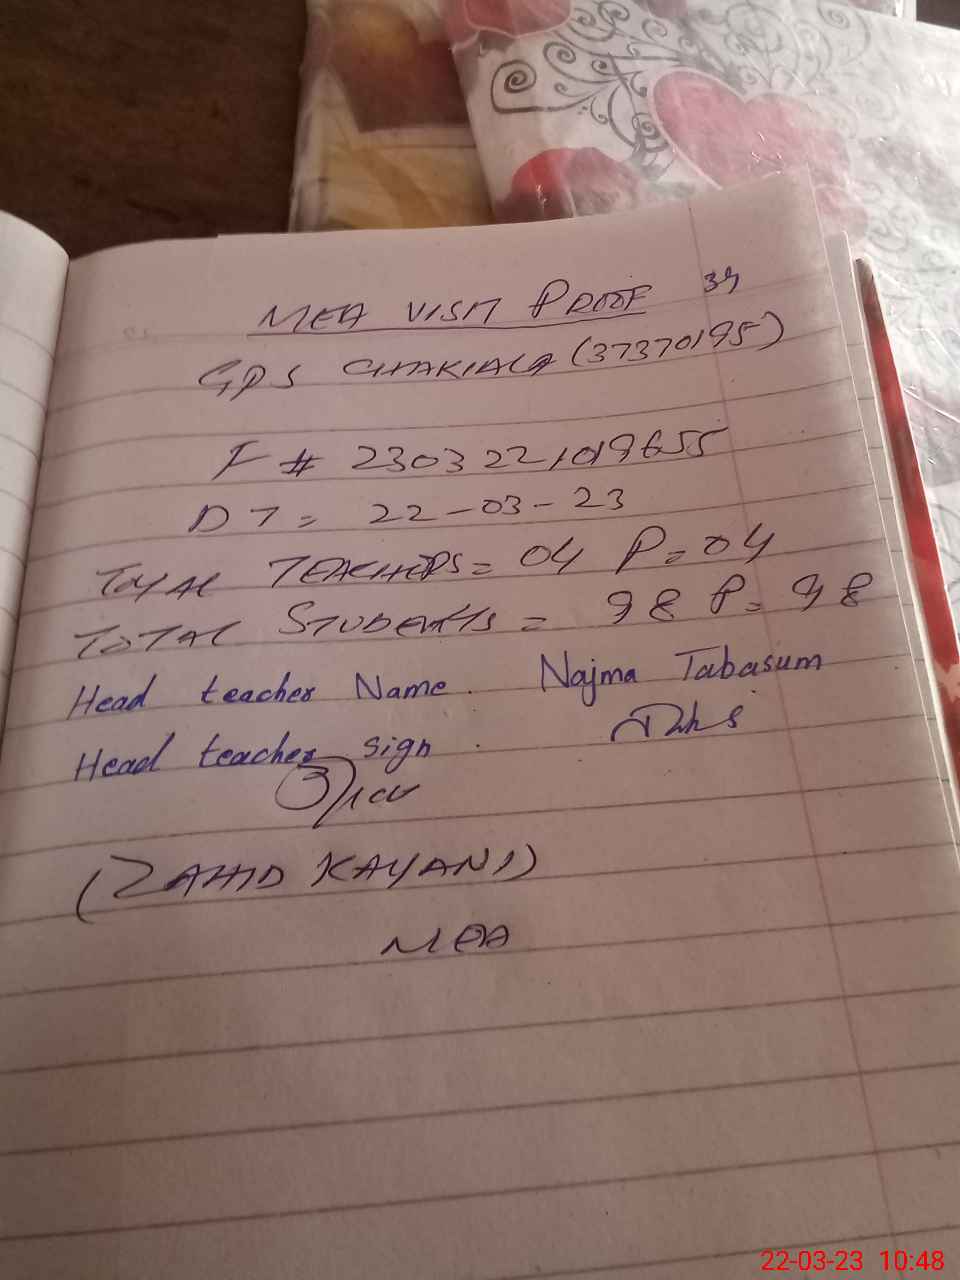 39
MEA VISIT PROOF
GPS CHAKIALA (37370195)
F # 2303221019655
DT = 22-03-23
TOTAL TEACHERS = 04 P = 04
TOTAL STUDENTS = 98 P = 98
Head teacher Name. Najma Tabasum
Head teacher sign.
(ZAHID KAYANI)
MEA
22-03-23 10:48